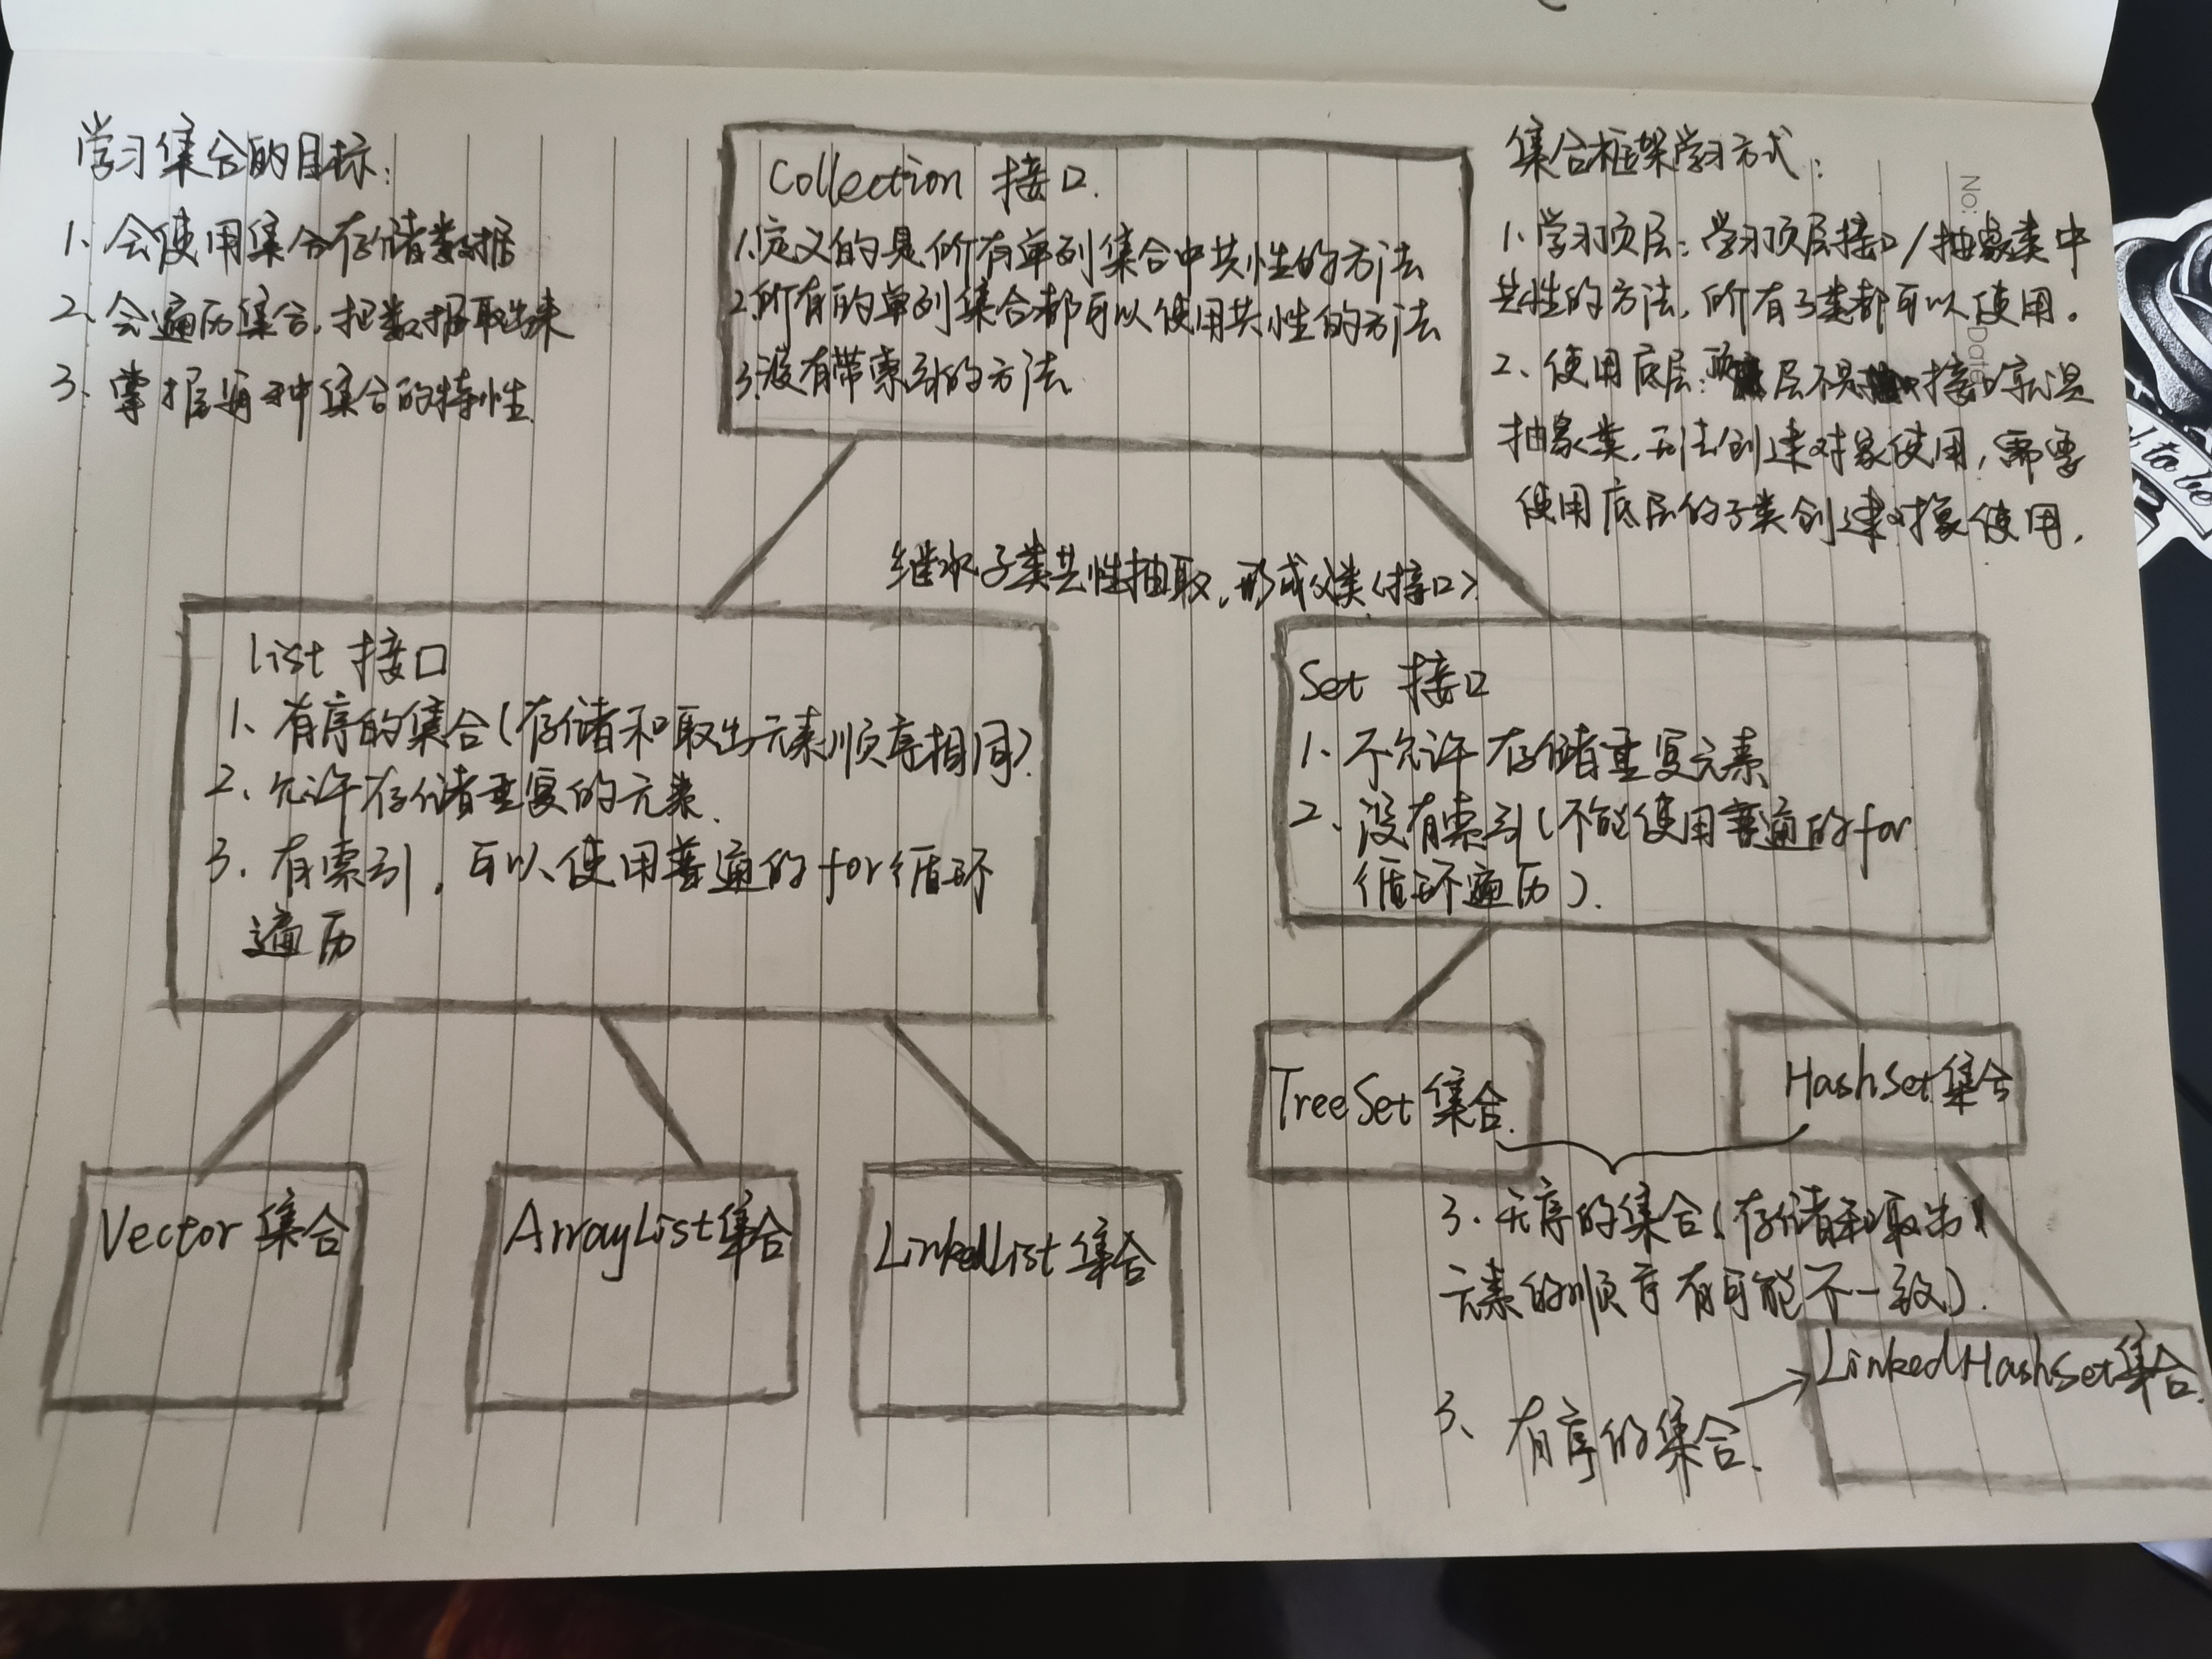 学习集合的目标:
1、会使用集合存储数据
2、会遍历集合,把数据取出来
3、掌握每种集合的特性.
Collection 接口.
1.定义的是所有单列集合中共性的方法
2.所有的单列集合都可以使用共性的方法
3.没有带索引的方法.
集合框架学习方式:
1、学习顶层:学习顶层接口/抽象类中
共性的方法,所有子类都可以使用。
2、使用底层: 层不是 接口就是
抽象类,无法创建对象使用,需要
使用底层的子类创建对象使用.
No:
Date
to be
继承子类共性抽取,形成父类(接口)
List 接口
1、有序的集合(存储和取出元素顺序相同)
2、允许存储重复的元素.
3、有索引,可以使用普通的for循环
遍历
Set 接口
1、不允许存储重复元素
2、没有索引(不能使用普通的for
循环遍历).
TreeSet集合.
HashSet集合
Vector集合
ArrayList集合
LinkedList集合
3、无序的集合(存储和取出
元素的顺序有可能不一致).
LinkedHashSet集合.
3、有序的集合.